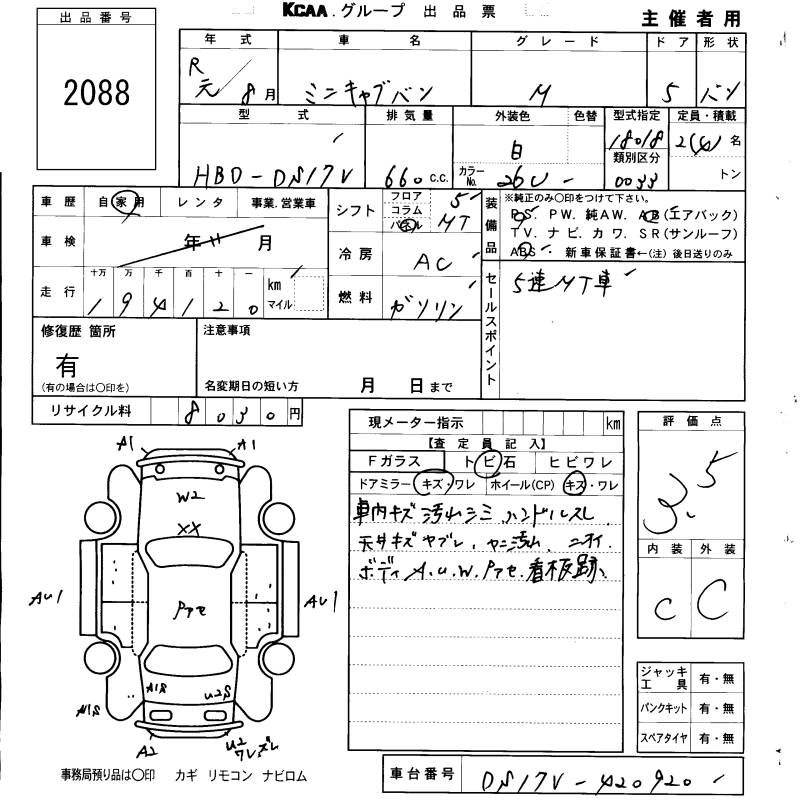 KCAA.グループ 出品票
主催者用
出品番号
2088
年式 車名 グレード ドア 形状
R元/8月 ミニキャブバン M 5 バン
型式 排気量 外装色 色替 型式指定 定員・積載
HBD-DS17V 660 c.c. 白 カラーNo. 26U 18018 2(4)名
類別区分
0033 トン
車歴 自家用 レンタ 事業.営業車
車検 年 月
走行 十万 万 千 百 十 一 km マイル
194120
シフト フロア コラム パネル 5 MT
冷房 AC
燃料 ガソリン
装備品 ※純正のみ○印をつけて下さい。
PS. PW. 純AW. AB(エアバック)
TV. ナビ. カワ. SR(サンルーフ)
ABS・新車保証書←(注)後日送りのみ
セールスポイント
5速MT車
修復歴 箇所
有
(有の場合は○印を)
注意事項
名変期日の短い方 月 日まで
リサイクル料 8030円
現メーター指示 km
【査定員記入】
Fガラス トビ石 ヒビワレ
ドアミラー キズ・ワレ ホイール(CP) キズ・ワレ
車内キズ汚レシミ ハンドルスレ
天井キズヤブレ、ヤニ汚レ、ニオイ
ボディA.U.W.Pアセ.看板跡
評価点
3.5
内装 外装
C C
ジャッキ工具 有・無
パンクキット 有・無
スペアタイヤ 有・無
A1 A1
W2
XX
AU1 Pアセ AU1
A1S U2S
A1S
A2 U2
ワレズレ
事務局預り品は○印 カギ リモコン ナビロム
車台番号 DS17V-420920